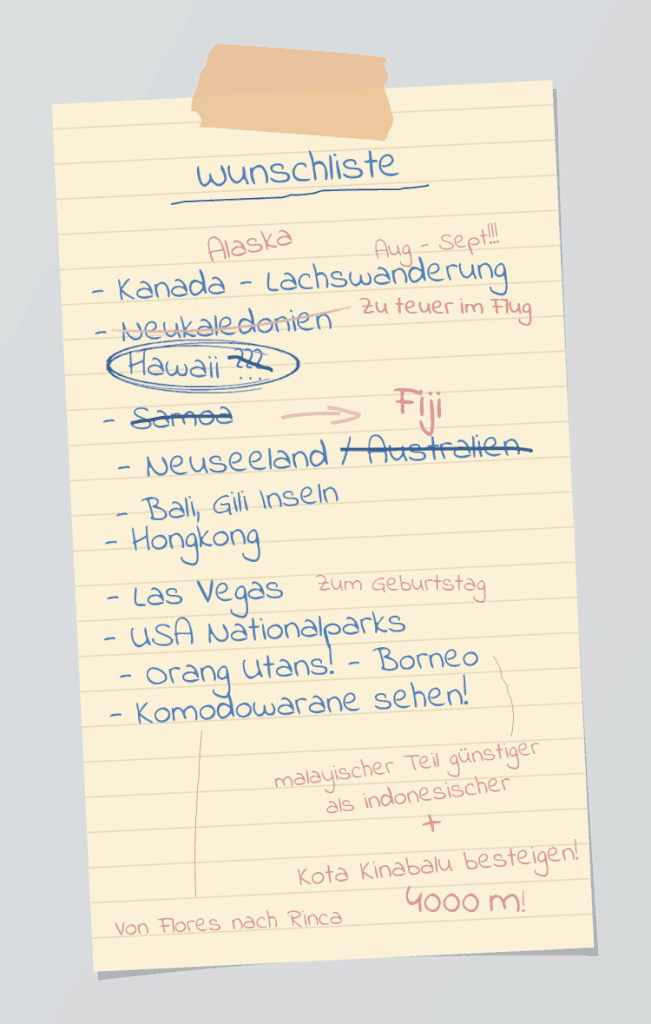 Wunschliste
Alaska
Aug - Sept!!!
- Kanada - Lachswanderung
- Neukaledonien
Zu teuer im Flug
Hawaii ???
- Samoa
Fiji
- Neuseeland / Australien
- Bali, Gili Inseln
- Hongkong
- Las Vegas
Zum Geburtstag
- USA Nationalparks
- Orang Utans! - Borneo
- Komodowarane sehen!
malayischer Teil günstiger
als indonesischer
+
Kota Kinabalu besteigen!
4000 m!
Von Flores nach Rinca